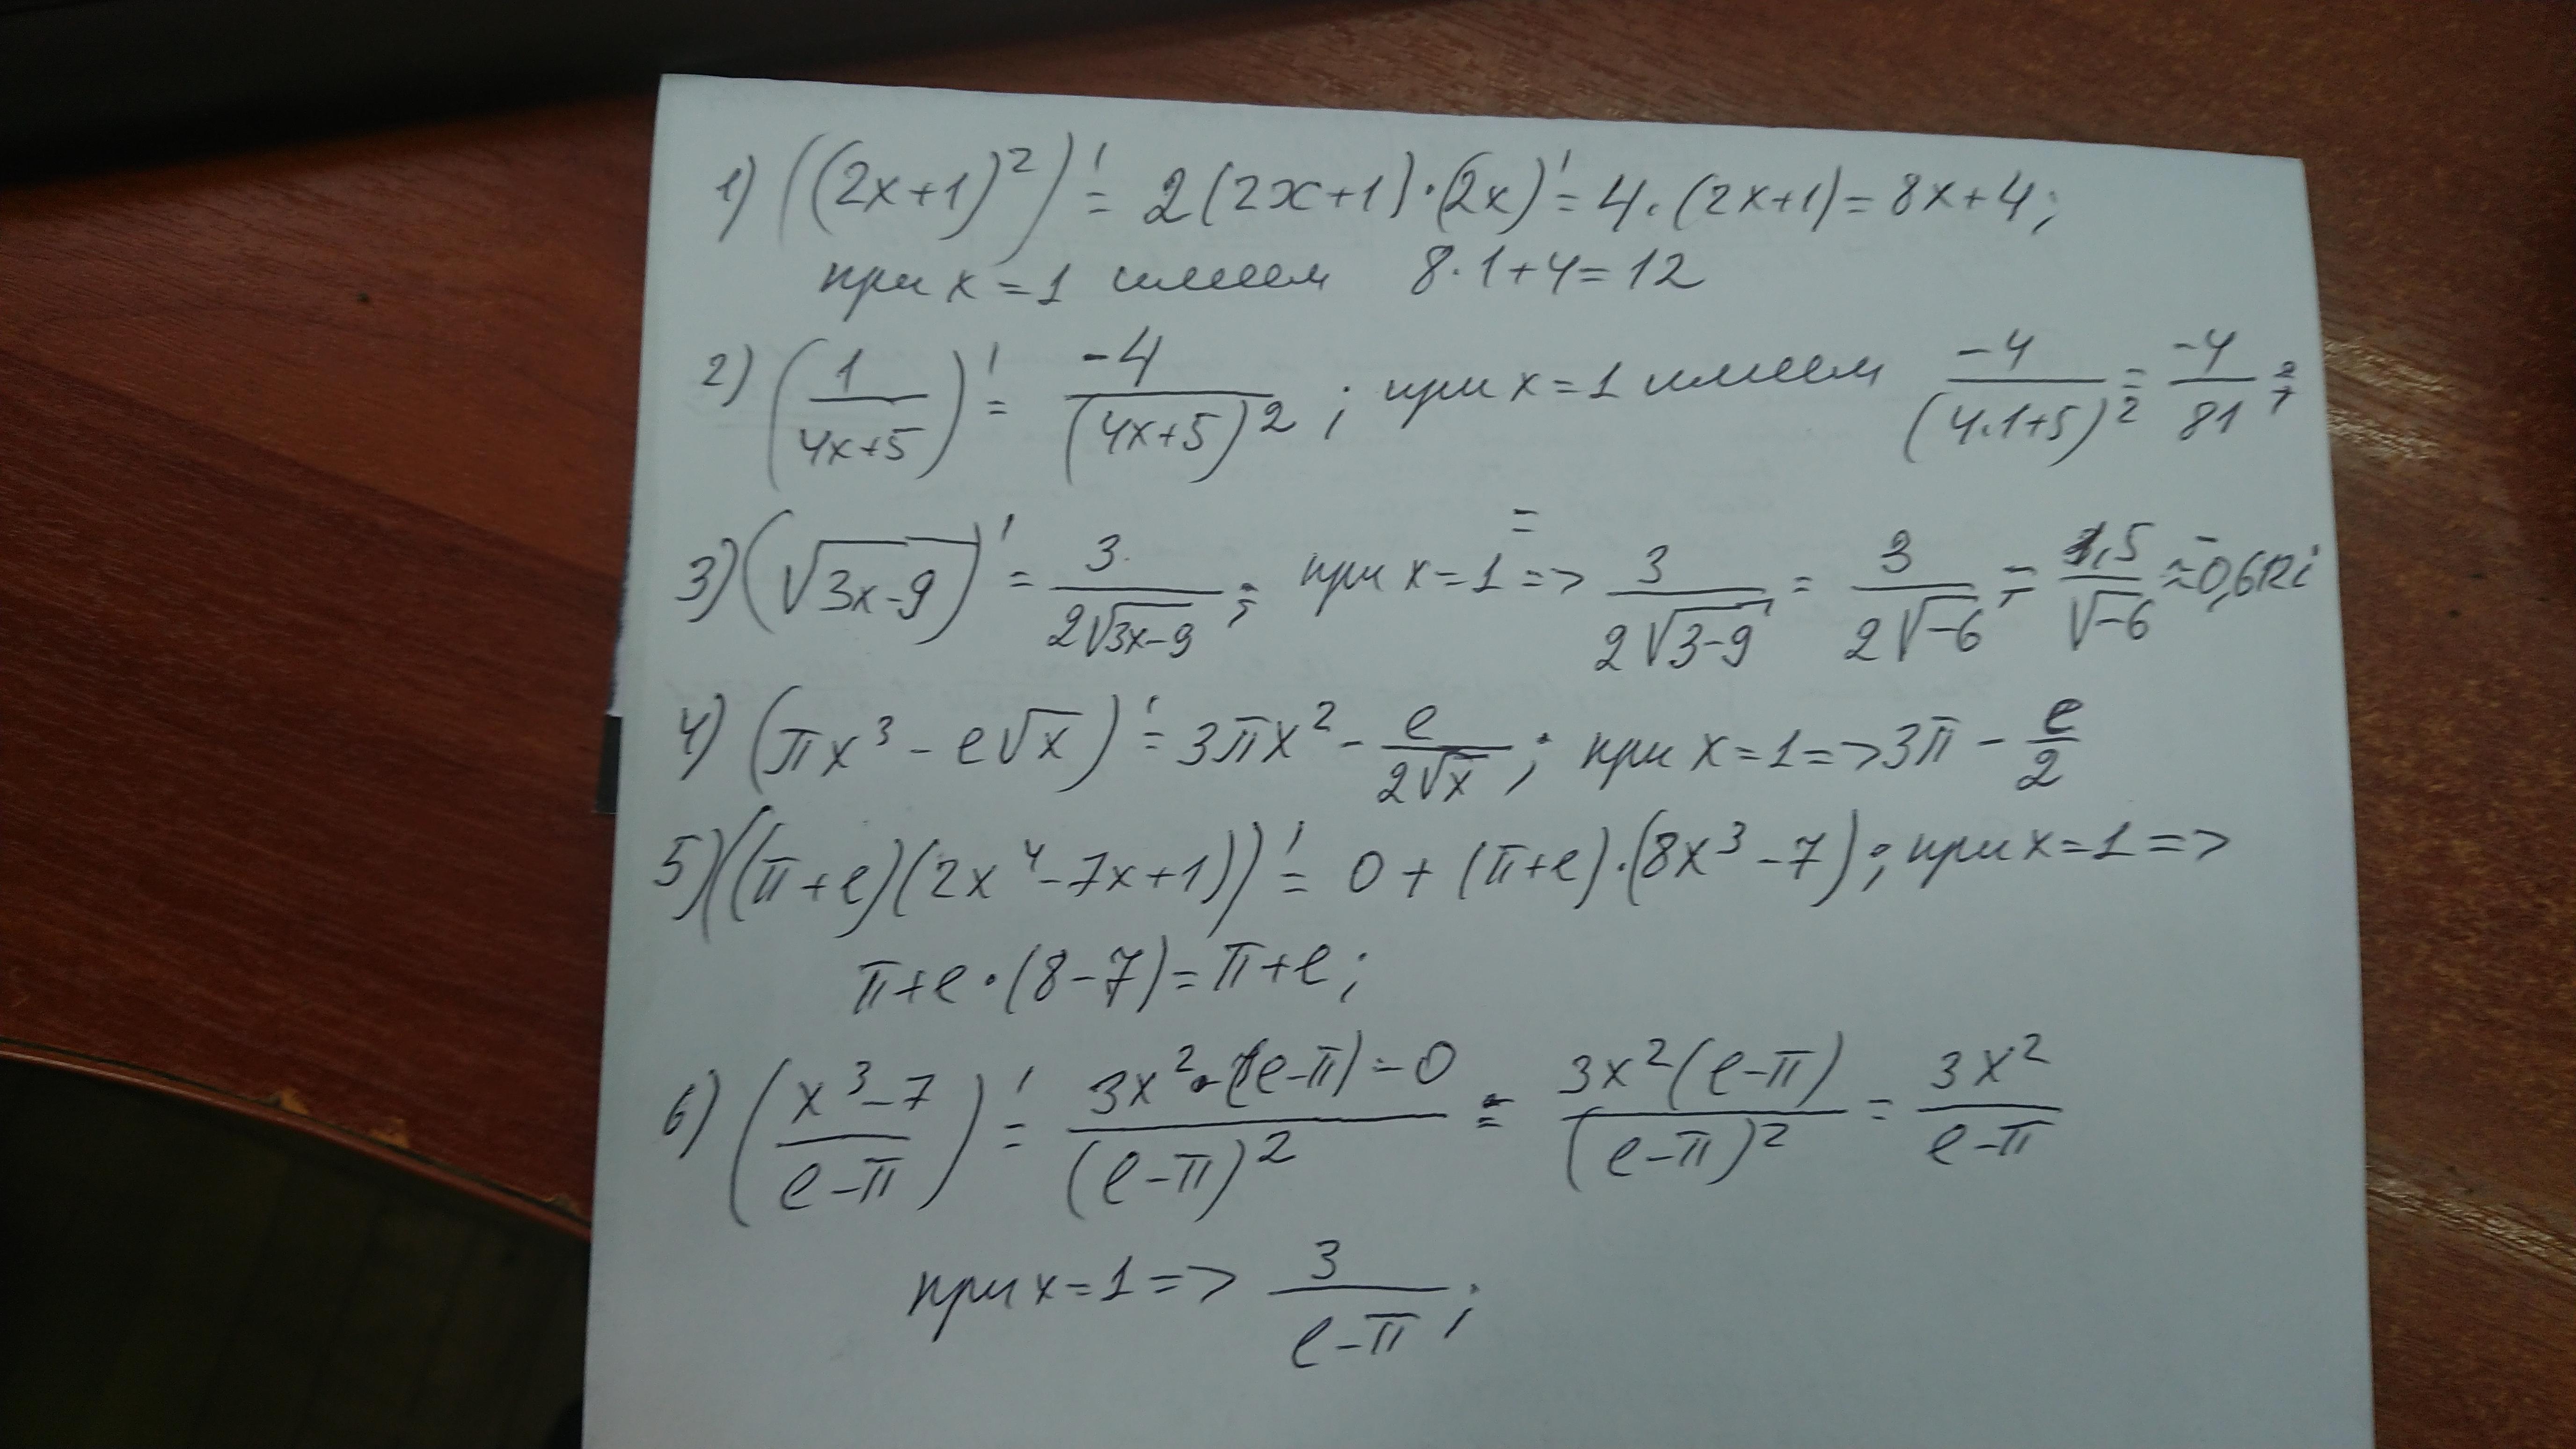 1) ((2x+1)²)' = 2(2x+1)·(2x)' = 4·(2x+1) = 8x+4;
при x=1 имеем 8·1+4=12
2) (1/(4x+5))' = -4/(4x+5)²; при x=1 имеем -4/(4·1+5)² = -4/81;
3) (√(3x-9))' = 3/(2√(3x-9)); при x=1 => 3/(2√(3-9)) = 3/(2√-6) = 1,5/√-6 ≈ -0,612i
4) (πx³ - e√x)' = 3πx² - e/(2√x); при x=1 => 3π - e/2
5) ((π+e)(2x⁴-7x+1))' = 0 + (π+e)·(8x³-7); при x=1 =>
π+e·(8-7)=π+e;
6) ((x³-7)/(e-π))' = (3x²·(e-π)-0)/(e-π)² = 3x²(e-π)/(e-π)² = 3x²/(e-π)
при x=1 => 3/(e-π);